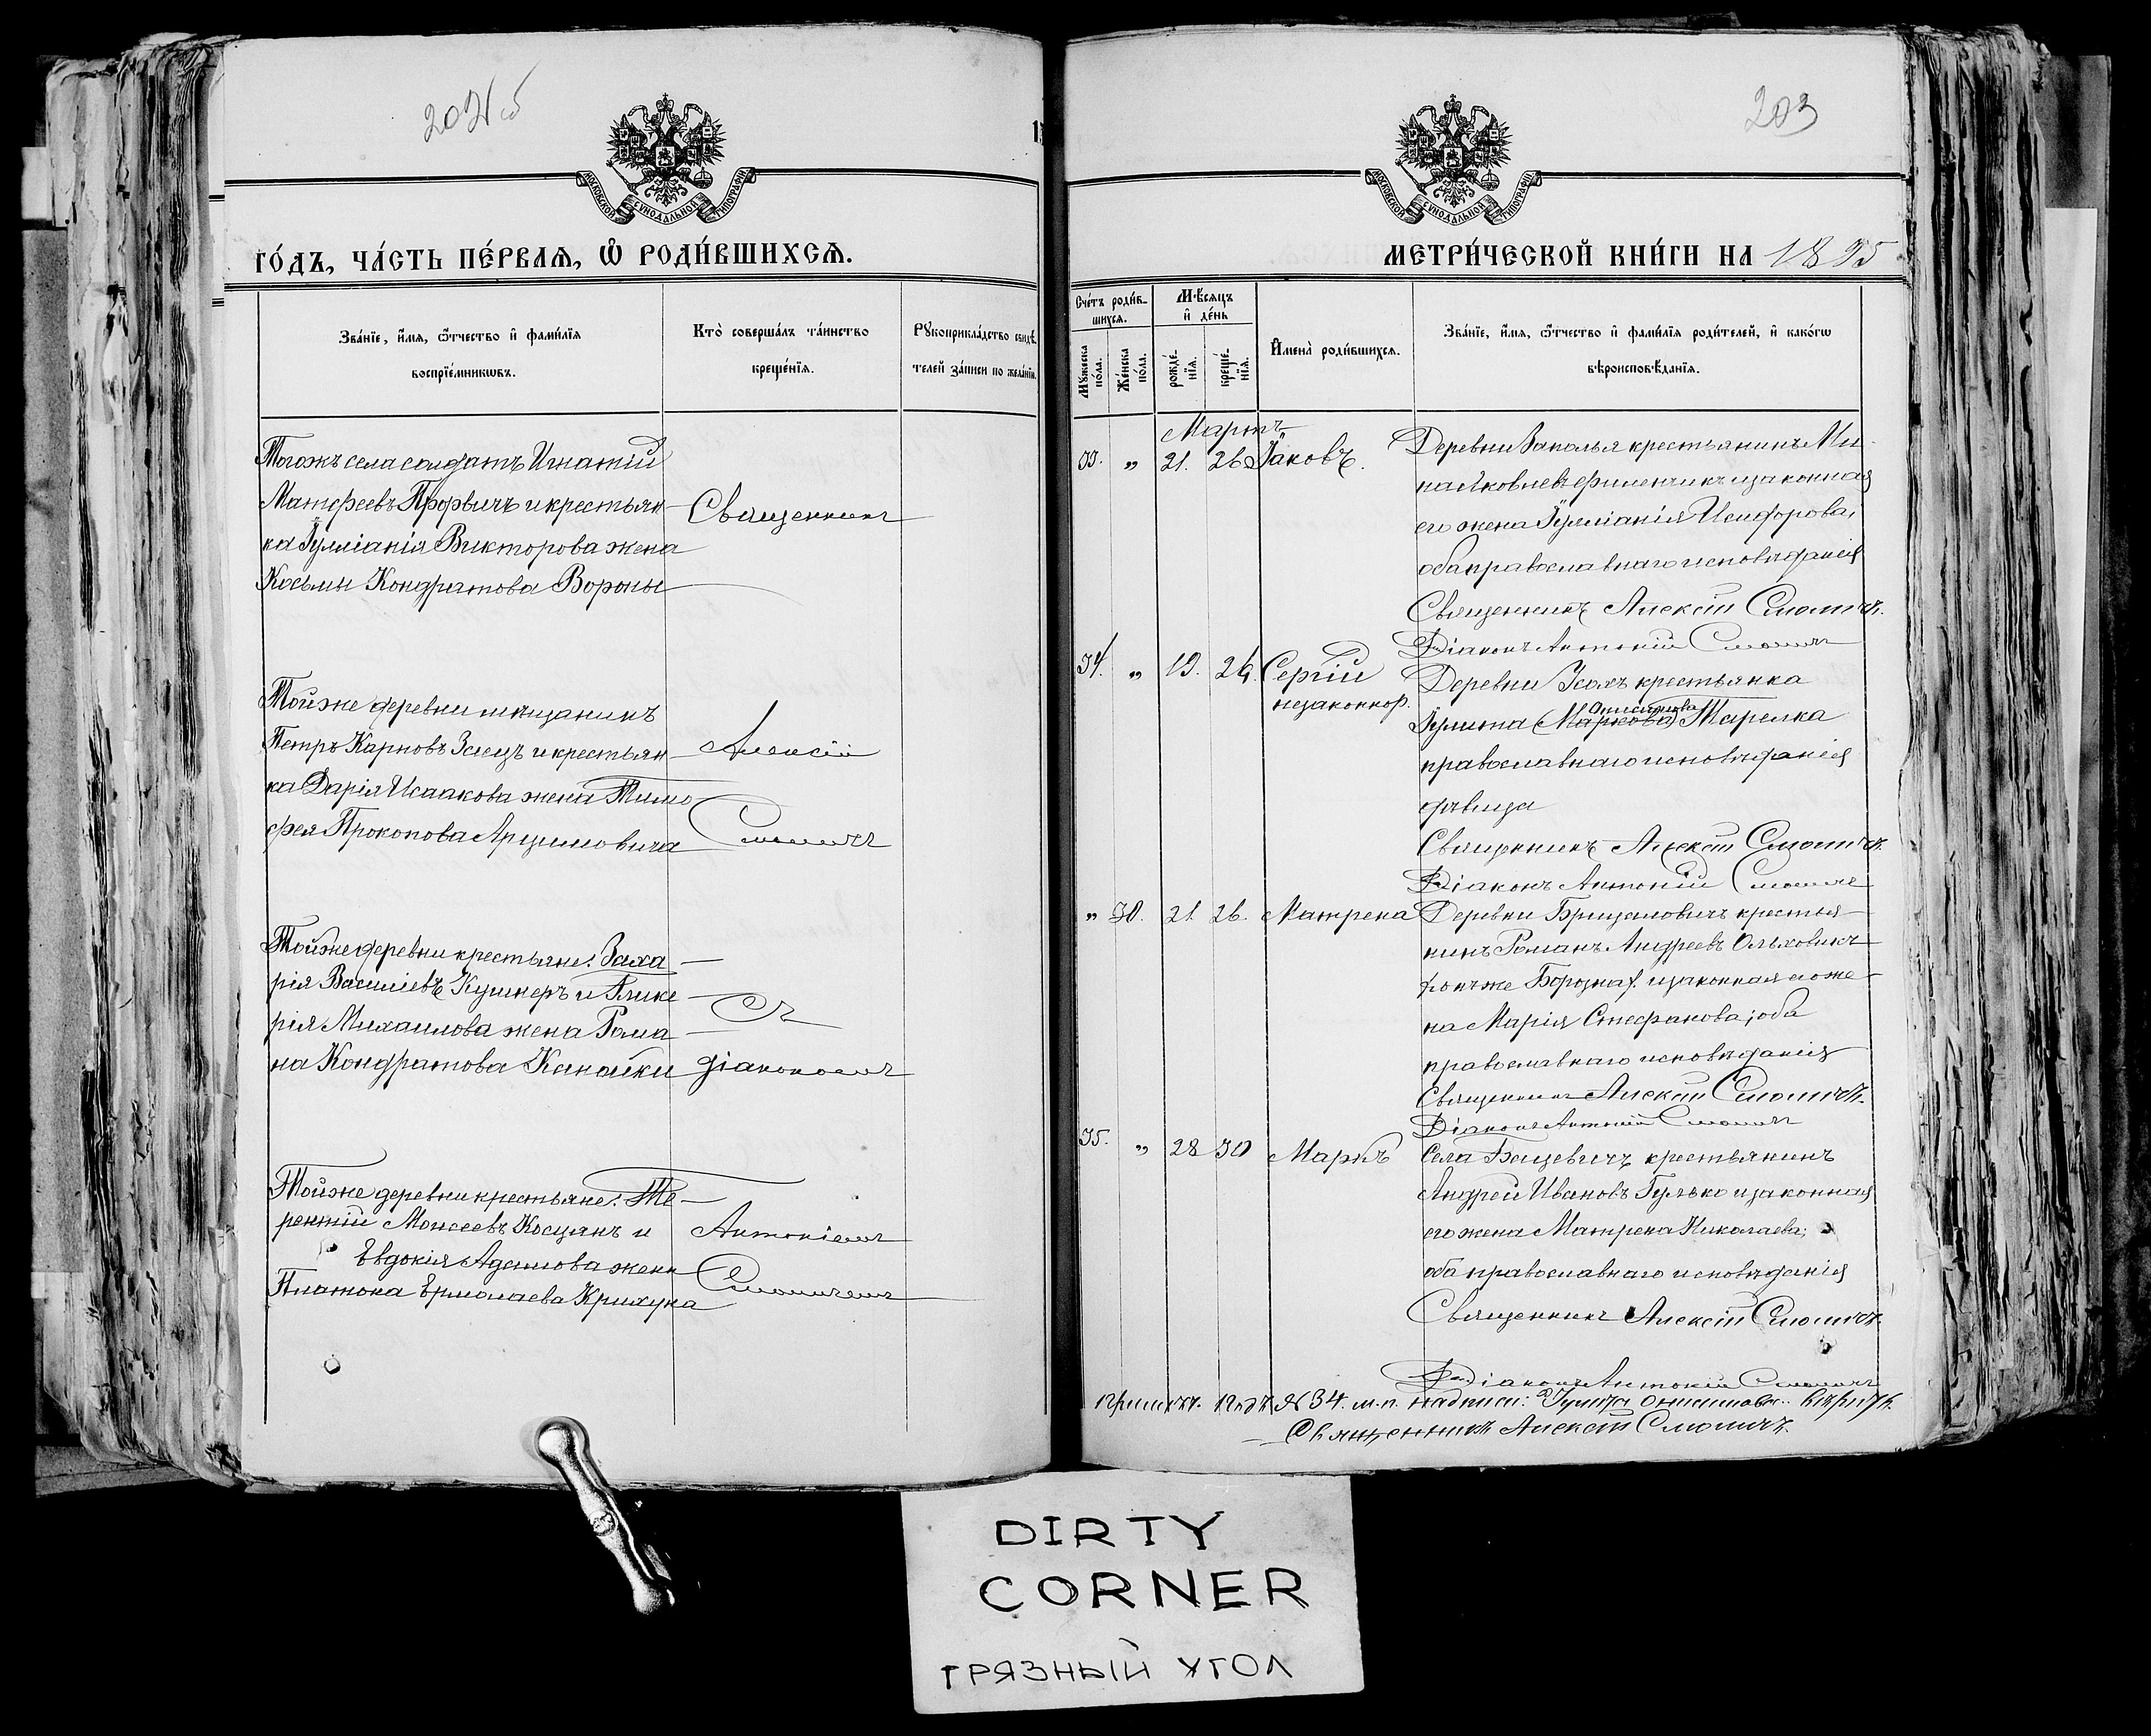 203
МОСКОВСКОЙ СѴНОДАЛЬНОЙ ТИПОГРАФІИ
МОСКОВСКОЙ СѴНОДАЛЬНОЙ ТИПОГРАФІИ
ГО́ДЪ, ЧА́СТЬ ПЕ́РВАѦ, Ѡ҆ РОДИ́ВШИХСѦ.
Зва́нїе, и҆́мѧ, ѻ҆́тчество и҆ фамі́лїѧ
воспрїе́мникѡвъ.
Кто̀ соверша́лъ та́инство
креще́нїѧ.
Рꙋкоприкла́дство свидѣ́
телей за́писи по жела́нїю
Тогожъ села солдатъ Игнатій
Матѳеевъ и крестьян
ка Іуліанія Викторова жена
Косьмы Кондратова Вороны
Священникъ
Тойже деревни мѣщанинъ
Петръ Карповъ Заецъ и крестьян
ка Дарія Исаакова жена Тимо
фея Прокопова Арцимовича
Алексій
Смоличъ
Тойже деревни крестьяне: Заха
рія Василіевъ Кушнеръ и Глике
рія Михаилова жена Рома
на Кондратова
Съ
діакономъ
Тойже деревни крестьяне: Те
рентій Моисеевъ и
Евдокія Адамова жена
Платона Ермолаева Крихуна
Антоніемъ
Смоличемъ
МЕТРИ́ЧЕСКОЙ КНИ́ГИ НА 1895
Сче́тъ роди́в-
шихсѧ.
Мꙋ́жеска
по́ла.
Же́нска
по́ла.
М-ѣсѧцъ
и҆ де́нь
рожде́-
нїѧ.
креще́-
нїѧ.
И҆мена̀ роди́вшихсѧ.
Зва́нїе, и҆́мѧ, ѻ҆́тчество и҆ фамі́лїѧ роди́телей, и҆ како́гѡ
вѣроисповѣ́данїѧ.
Мартъ
33. „ 21. 26 Іаковъ.
Деревни Заполья крестьянинъ Ми-
на Яковлевъ и законная
его жена Іуліанія Исидорова,
оба православнаго исповѣданія
Священникъ Алексій Смоличъ.
Діаконъ Антоній Смоличъ
34. „ 19. 26. Сергій
незаконнор.
Деревни Усохъ крестьянка
Онисимова
Іулита (Маркова) Тарелка
православнаго исповѣданія
дѣвица
Священникъ Алексій Смоличъ.
Діаконъ Антоній Смоличъ
„ 30. 21. 26. Матрена
Деревни Брицаловичъ крестья-
нинъ Романъ Андреевъ Ольховикъ
(онъ же Борозна), и законная его же-
на Марія Стефанова; оба
православнаго исповѣданія
Священникъ Алексій Смоличъ.
Діаконъ Антоній Смоличъ
35. „ 28 30 Маркъ
Села Бацевичъ крестьянинъ
Андрей Ивановъ Гулько и законная
его жена Матрена Николаева;
оба православнаго исповѣданія
Священникъ Алексій Смоличъ.
Діаконъ Антоній Смоличъ
подъ №34. м.п. надписи: „Іулита Онисимова" вѣрить.
Священникъ Алексій Смоличъ.
DIRTY
CORNER
ГРЯЗНЫЙ УГОЛ